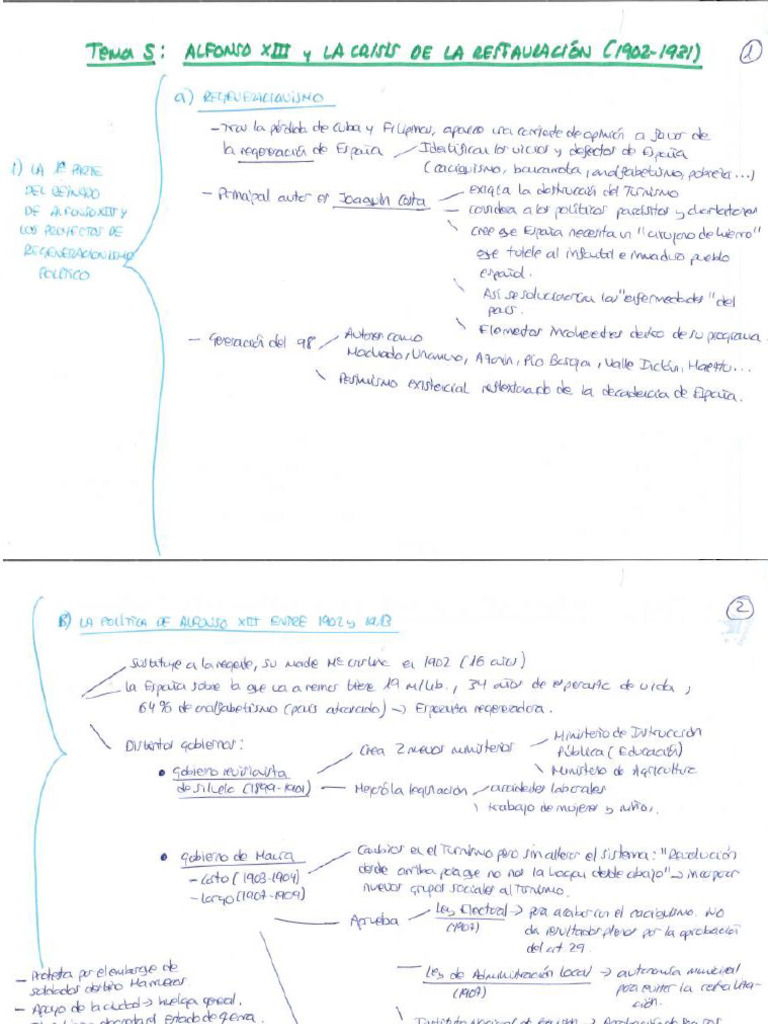 Tema 5: ALFONSO XIII y LA CRISIS DE LA RESTAURACIÓN (1902-1931)
1
a) REGENERACIONISMO
- Tras la pérdida de Cuba y Filipinas, aparece una corriente de opinión a favor de
la regeneración de España
Identificar los vicios y defectos de España
(caciquismo, bancarrota, analfabetismo, pobreza...)
1) LA 1ª PARTE
DEL REINADO
DE ALFONSO XIII Y
LOS PROYECTOS DE
REGENERACIONISMO
POLÍTICO
- Principal autor es Joaquín Costa
exigía la destrucción del Turnismo
considera a los políticos parásitos y charlatanes
cree que España necesita un "cirujano de hierro"
que tutele al infantil e inmaduro pueblo
español.
Así se solucionarían las "enfermedades" del
país.
Elementos incoherentes dentro de su programa.
- Generación del 98
Autores como
Machado, Unamuno, Azorín, Pío Baroja, Valle Inclán, Maeztu...
Pesimismo existencial reflexionado de la decadencia de España.
2
B) LA POLÍTICA DE ALFONSO XIII ENTRE 1902 y 1913
Sustituye a la regente, su madre Mª Cristina en 1902 (16 años)
la España sobre la que va a reinar tiene 19 m/hab., 34 años de esperanza de vida,
64% de analfabetismo (país atrasado) → Esperanza regeneradora.
Distintos gobiernos:
• Gobierno revisionista
de Silvela (1899-1901)
Crea 2 nuevos ministerios
Ministerio de Instrucción
Pública (Educación)
Ministerio de Agricultura
Mejoró la legislación
accidentes laborales
trabajo de mujeres y niños.
• Gobierno de Maura
- Corto (1903-1904)
- Largo (1907-1909)
Cambios en el Turnismo pero sin alterar el sistema: "Revolución
desde arriba para que no nos la hagan desde abajo" → incorporar
nuevos grupos sociales al Turnismo.
Aprueba
Ley Electoral → para acabar con el caciquismo. No
(1907)
da resultados plenos por la aprobación
del art 29.
- Protesta por el embarque de
soldados destino Marruecos
- Apoyo de la ciudad → huelga general.
Ley de Administración Local → autonomía municipal
(1907)
para evitar la centraliza-
ción.
el Estado de guerra.
Instituto Nacional de